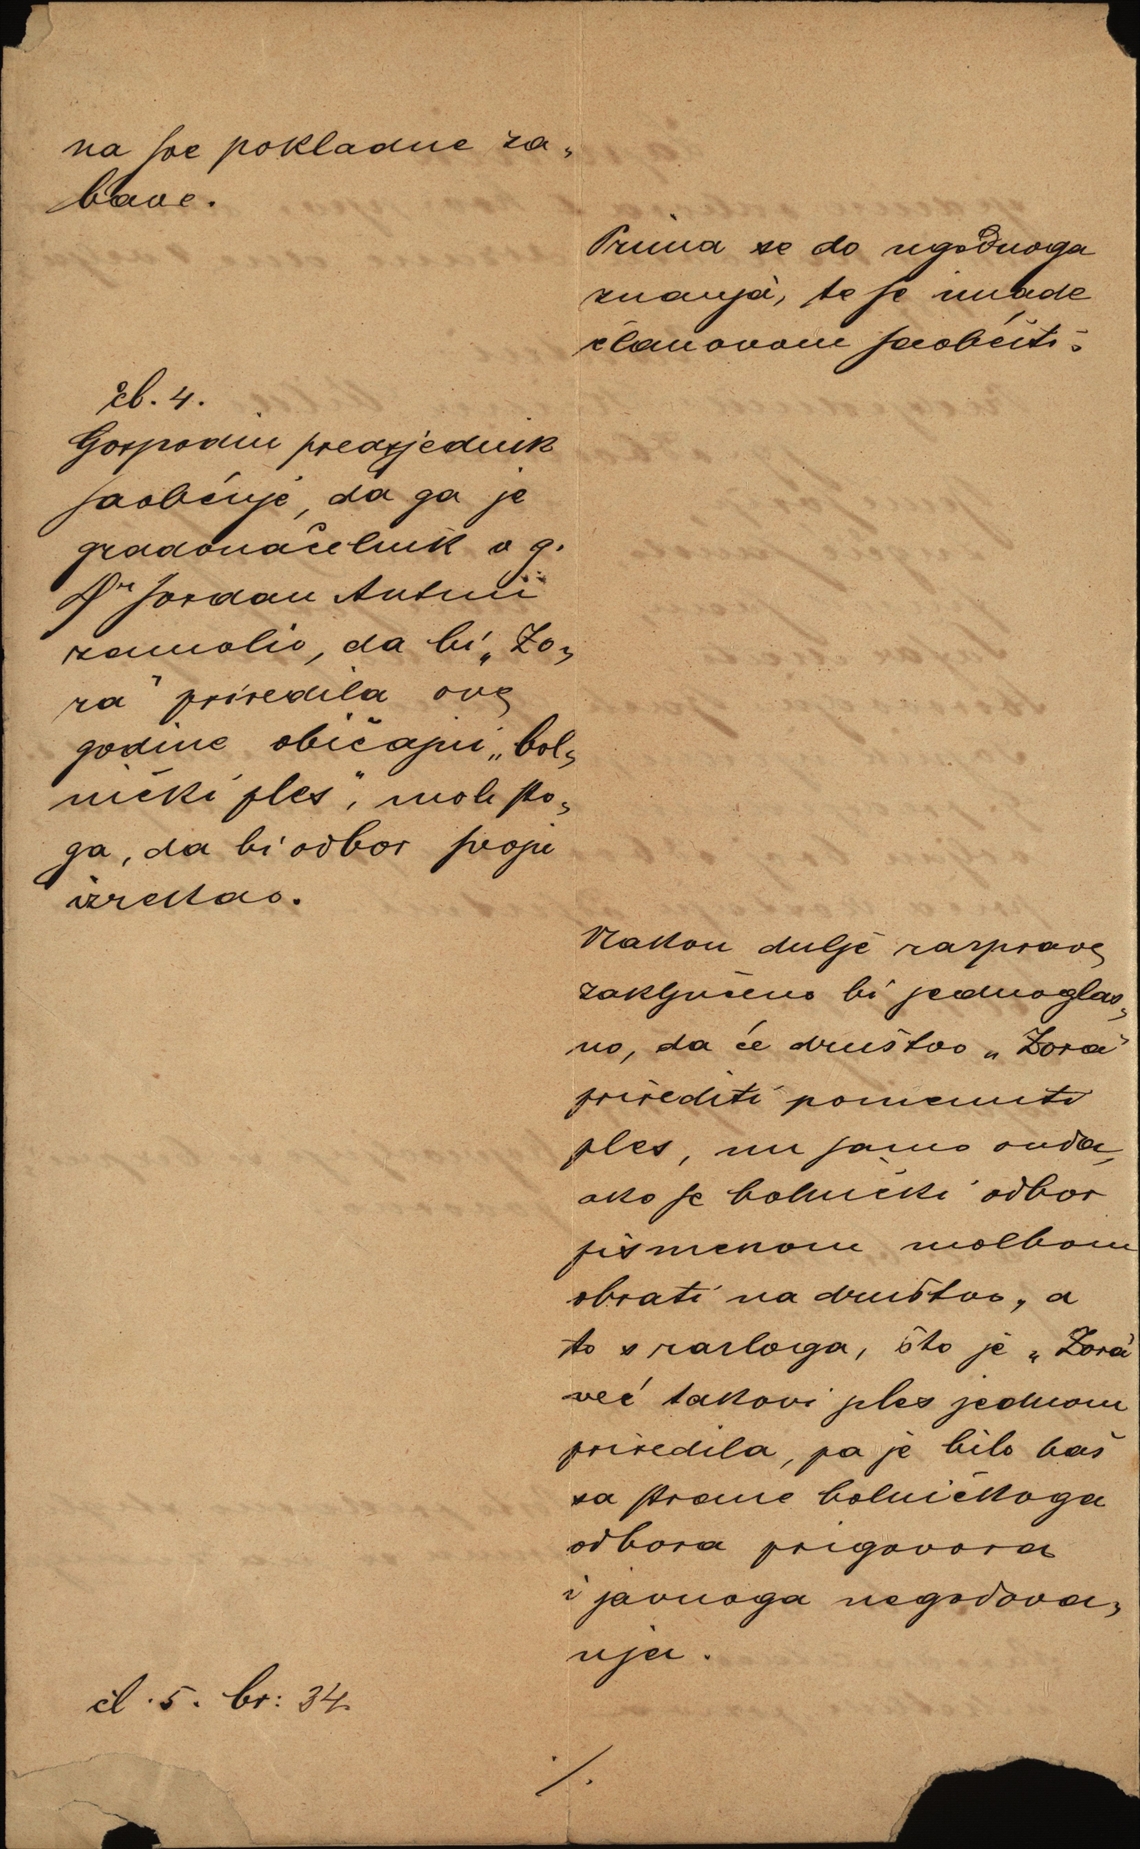 na sve pokladne za„
bave.
Prima se do ugodnoga
znanja, te se imade
članovom saobćiti.
čl. 4.
Gospodin predsjednik
saobćuje, da ga je
gradonačelnik v. g.
Dr Jordan Antun
zamolio, da bi „Zo„
ra" priredila ove
godine običajni „bol„
nički ples", moli sto„
ga, da bi odbor svoju
izrekao.
Nakon dulje rasprave
zaključeno bi jednoglas„
no, da će društvo „Zora"
prirediti pomenuti
ples, nu samo onda,
ako se bolnički odbor
pismenom molbom
obrati na društvo, a
to s razloga, što je „Zora"
već takovi ples jednom
priredila, pa je bilo baš
sa strane bolničkoga
odbora prigovora
i javnoga negodova„
nja.
čl. 5. br: 34.
·/.